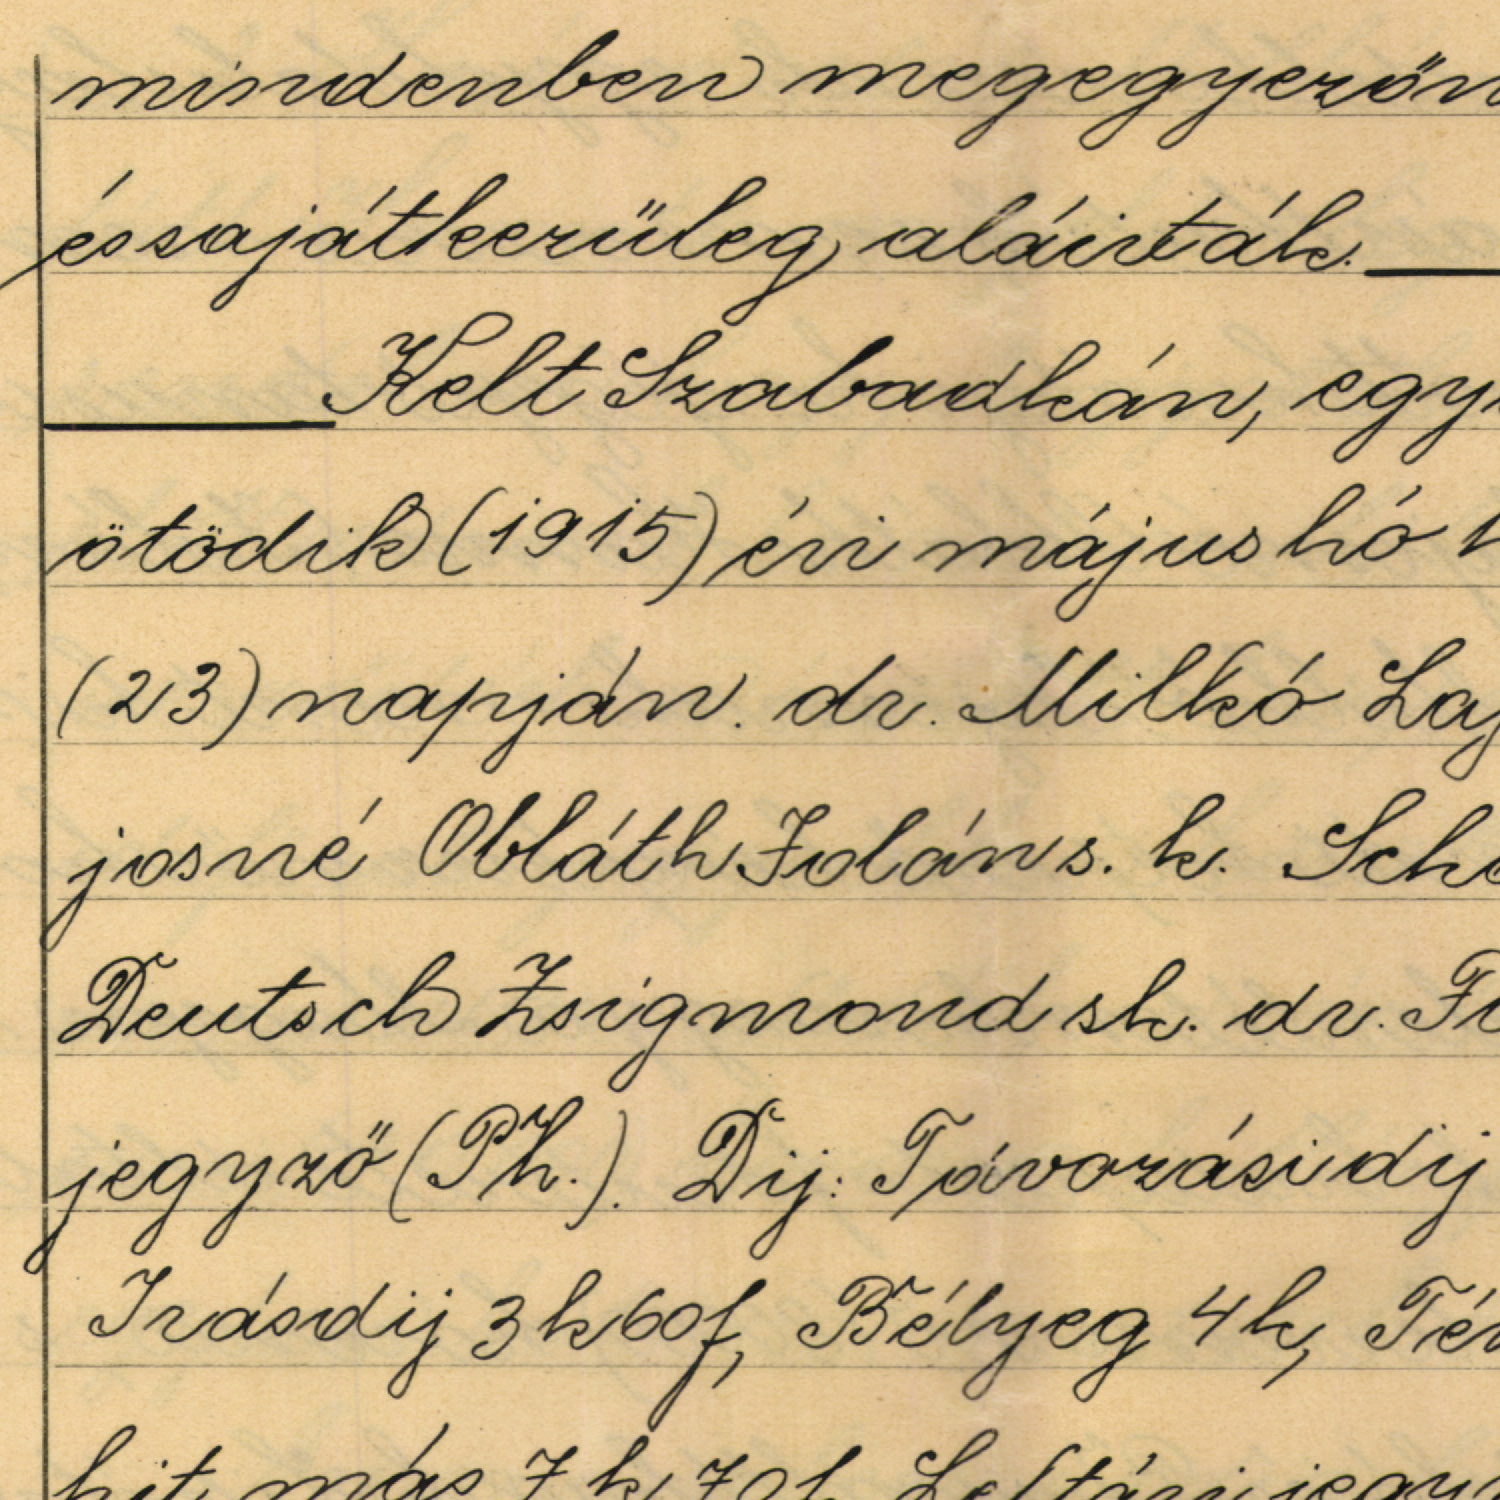 mindenben megegyezőn
és sajátkezüleg aláirták.
Kelt Szabadkán, egy
ötödik (1915) évi május hó
(23) napján. dr. Milkó Laj
josné Obláth Jolán s. k. Sch
Deutsch Zsigmond sk. dr.
jegyző (Ph.). Dij: Távozási dij
Irásdij 3 k 60 f, Bélyeg 4 k, Tér
hit. más 7 k 70 f. Leltári jegy